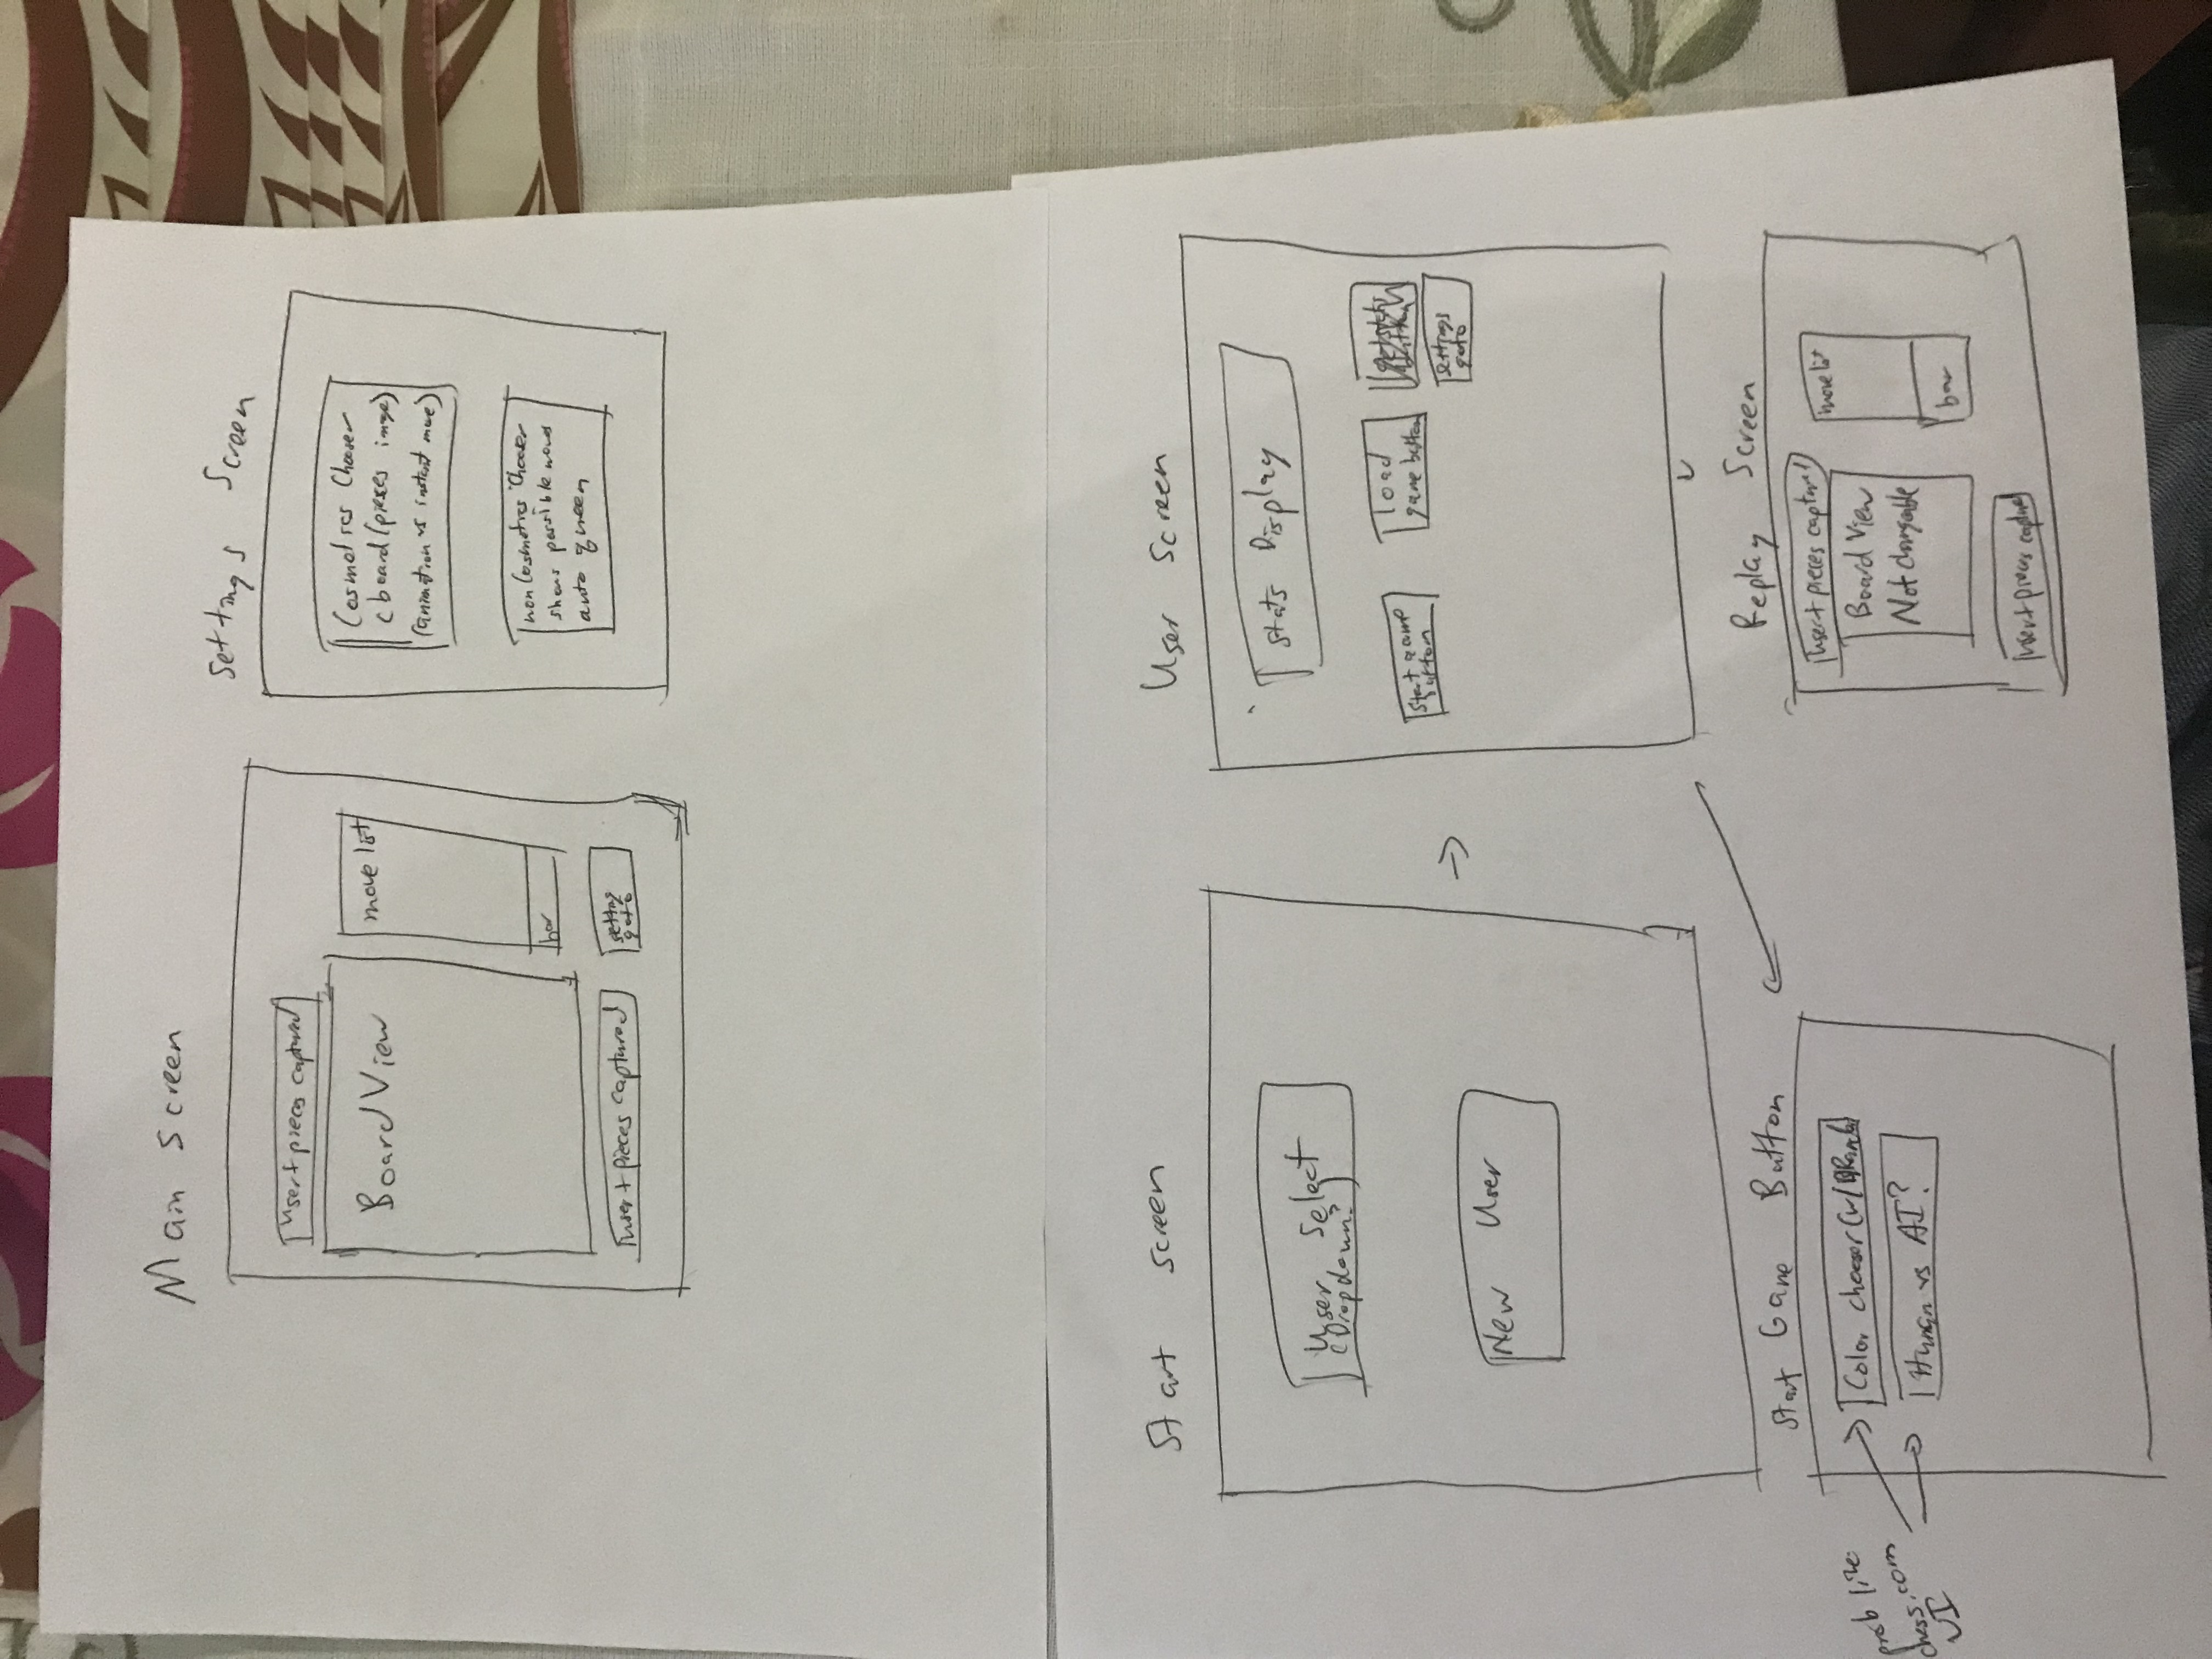 Main Screen
User + pieces captured
Board View
move list
bar
User + pieces captured
setting
goto
Settings Screen
Cosmetics Chooser
(board/pieces image)
(animation vs instant move)
non Cosmetics Chooser
shows possible moves
auto queen
Start screen
User Select
(Dropdown?)
New User
User Screen
Stats Display
Start game
button
load
game button
settings
goto
Start Game Button
Color chooser (w/B/
Human vs AI?
prob like
chess.com
UI
Replay Screen
User + pieces captured
Board View
Not changeable
move list
bar
User + pieces captured